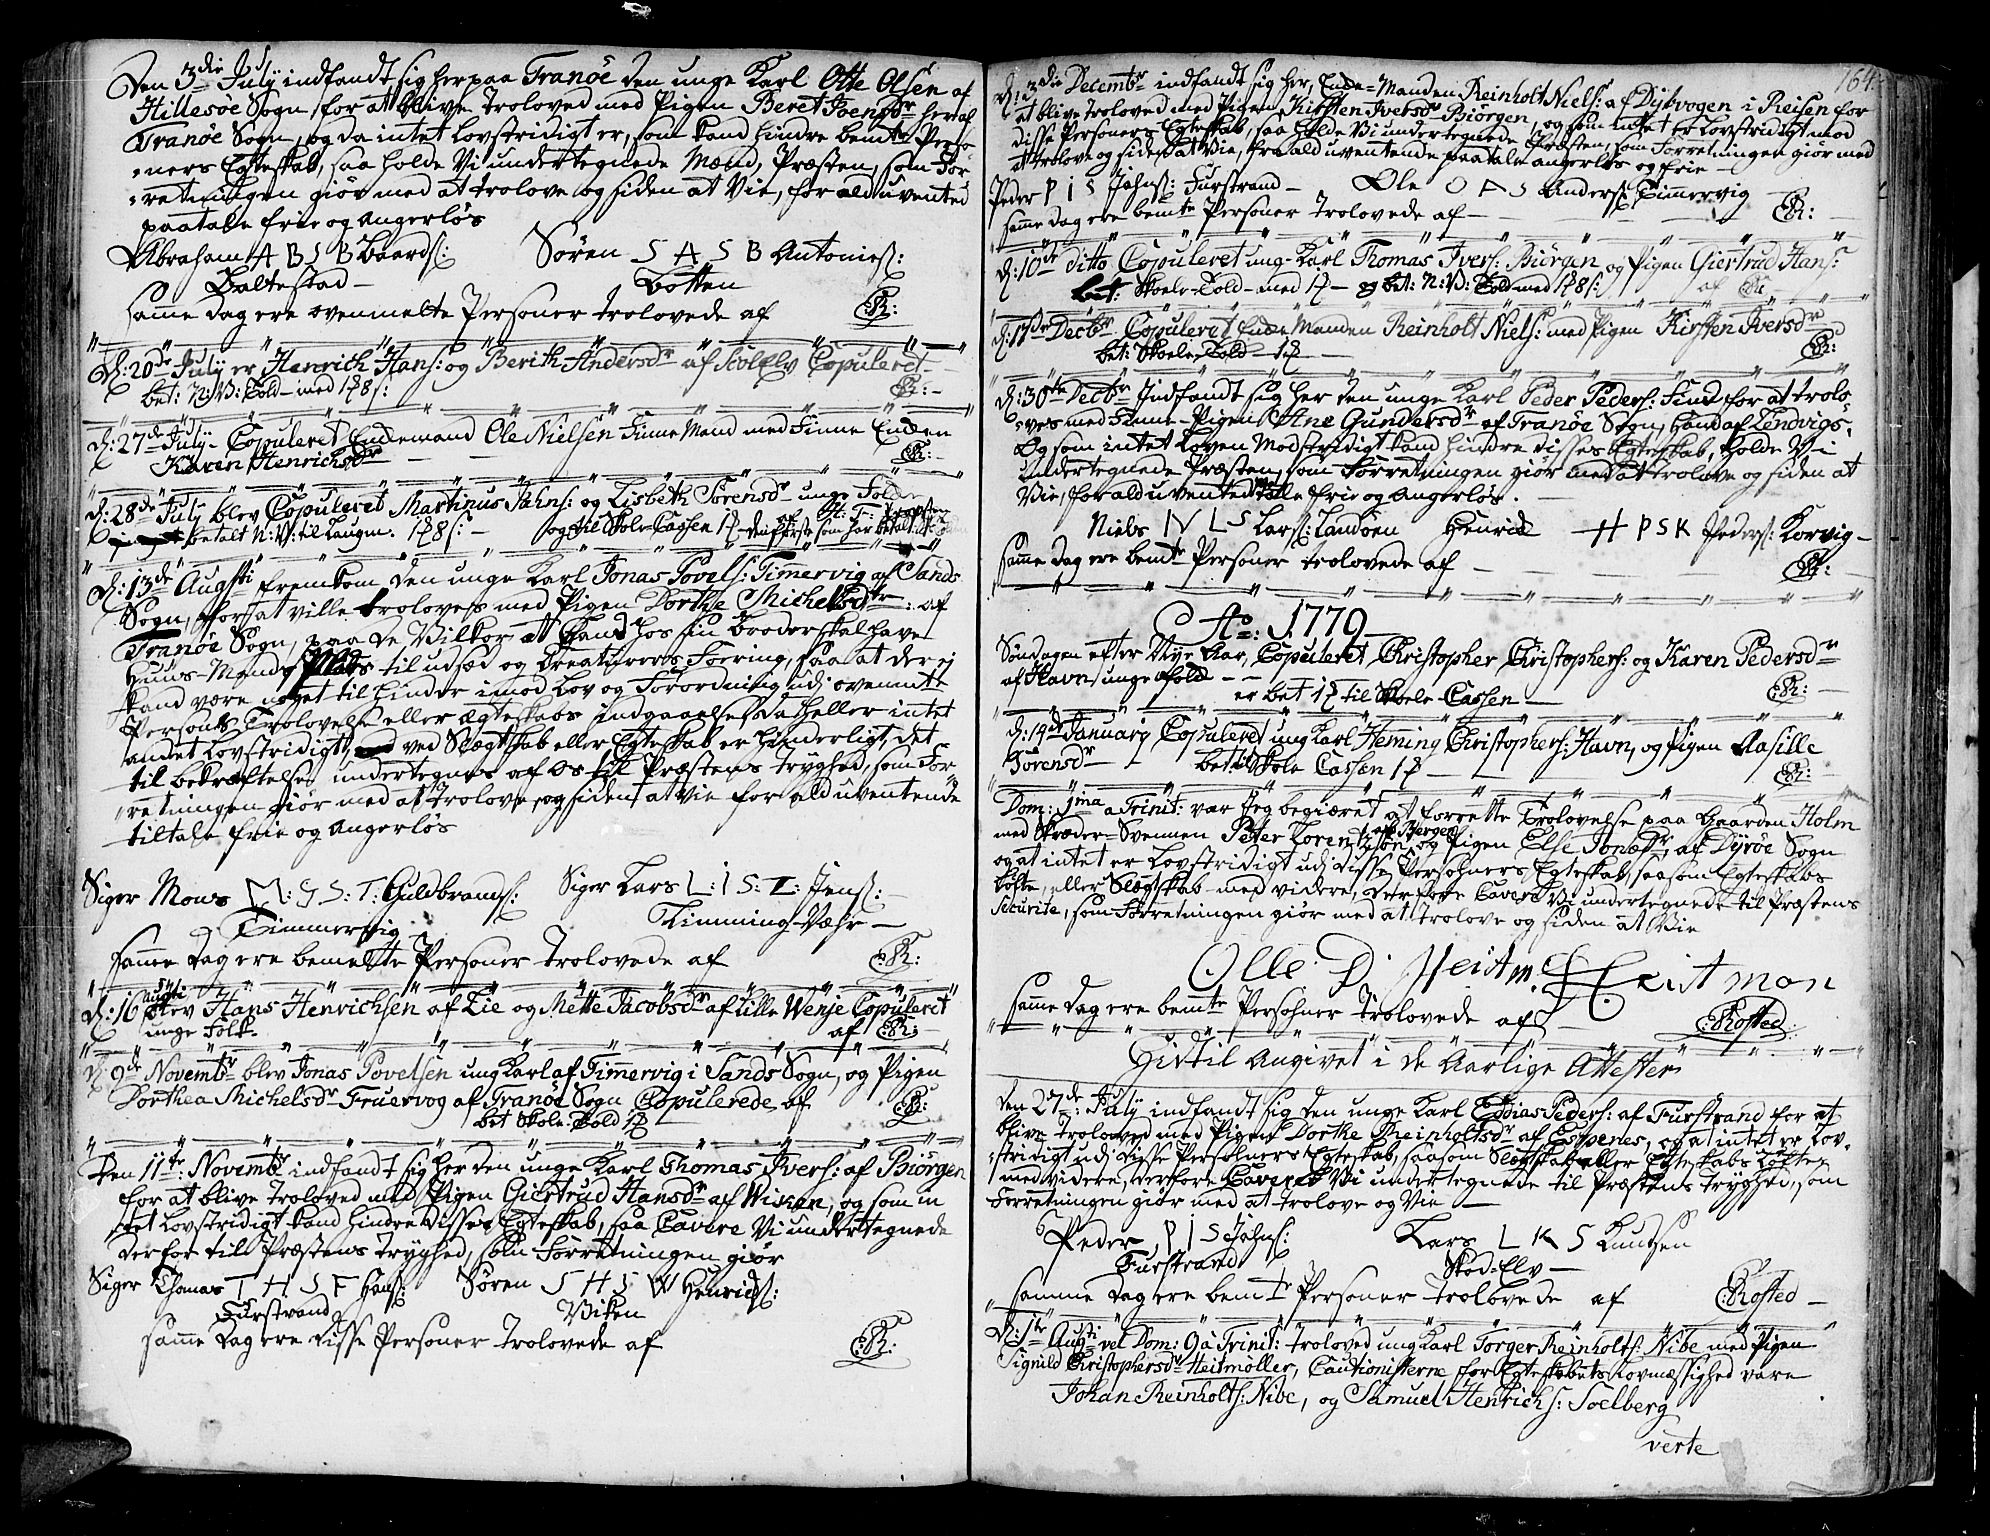 Den 3die July indfandt sig her paa Tranöe den unge Karl Otte Olsen af
Hillesöe Sogn, for at blive Troloved med Pigen Beret Joensdr her af
Tranöe Sogn, og da intet Lovstridigt er, som kand hindre bemte Perso-
ners Egteskab, saa holde Vi undertegnede Mænd, Præsten, som For-
retningen giör med at trolove og siden at Vie, for ald uvented
paatale frie og angerlös
Abraham A B S B Baards:   Sören S A S B Antonies:
Baltestad   Botten
Samme Dag ere ovenmelte Personer trolovede af   ER:
D: 20de July er Henrich Hans: og Berith Andersdr af Copuleret
bet: N: V: Told med 1 8 s:   ER:
D: 27de July Copuleret Enkemand Ole Nielsen Finne Mand med Finne Enken
Karen Henrichsdr   ER:
D: 28de July blev Copuleret Martinus Jahns: og Lisbeth Sörensdr unge Folk
betalt N: V: til Laugm. 1 8 s:   og til Skole Cassen   den förste som har betalt
D: 13de Augsti fremkom den unge Karl Jonas Povels: Timmervig af Sands
Sogn, for at ville trolovess med Pigen Dorthe Michelsdtr: af
Tranöe Sogn, paa de Vilkor at hand hos sin broder skal have
Huus-Mands Plads til udsæd og Creaturers Foering, saa at der ej
kand være noget til hinder imod Lov og Forordning udi ovenmte
Persons Trolovelse eller ægteskabs indgaaelse, da heller intet
andet Lovstridigt, ved Slægtskab eller Egteskab er hinderligt, det
til bekræftelse undertegnes af Os til Præstens tryghed, som For-
retningen giör med at trolove, og siden at Vie for ald uventende
tiltale frie og angerlös
Siger Mons M: G S: T: Guldbrands:   Siger Lars L: I S: Jens:
Timmervig   Kimming-Vær
Samme Dag ere bemelte Personer trolovede af   ER:
D: 16 Augsti blev Hans Henrichsen af Lie og Mette Jacobsdr af Lille Wenje Copuleret
unge Folk   af ER:
D: 9de Novembr blev Jonas Povelsen ung Karl af Timmervig i Sands Sogn, og Pigen
Dorthea Michelsdr Fruervog af Tranöe Sogn Copulerede af
bet Skole Told   ER:
Den 11te Novembr indfandt sig her den unge Karl Thomas Ivers: af Biörgen
for at blive Troloved med Pigen Giertrud Hansdr af Wiken, og som in
tet Lovstridigt kand hindre disses Egteskab, saa Cavere Vi undertegnede
derfor til Præstens Tryghed, som Forretningen giör
Siger Thomas T H S F Hans:   Sören S H S W Henrichs:
Furstrand   Viken
Samme Dag ere disse Personer trolovede af   ER:
164
D: 3die Decembr indfandt sig her, Enke-Manden Reinholt Niels: af Dybvogen i Reisen for
at blive troloved med Pigen Kirsten Iversdr Biörgen, og som intet er Lovstridigt mod
disse Personers Egteskab, saa holde Vi undertegnede Præsten, som Forretningen giör med
at trolove og siden at Vie, fra ald uventende paatale angerlös og frie
Peder P I S Jahns: Furstrand   Ole O A S Anders: Timmervig
Samme dag ere bemte Personer trolovede af   ER:
D: 10de ditto Copuleret ung Karl Thomas Ivers: Biörgen og Pigen Giertrud Hans:
bet: Skole-Told med   og bet: N: V: Told med 1 8 s:   af ER
D: 17de Decbr Copuleret Enke Manden Reinholt Niels: med Pigen Kirsten Iversdr
bet: Skole Told   ER:
D: 30te Decbr Indfandt sig her den unge Karl Peder Peders: Find for at trolo
ves med Finne-Pigen Ane Gundersdr af Tranöe Sogn, hand af Lenvigs,
Og som intet Loven Modstridigt kand hindre disses Egteskab, holde Vi
undertegnede Præsten, som Forretningen giör med at trolove og siden at
Vie, for ald uvented tale frie og angerlös.
Niels N L S Lars: Landöen   Henrich H P S K Peders: Korvig
Samme Dag ere bemte Personer trolovede af   ER:
Ao: 1779
Söndagen efter Nye Aar, Copuleret Christopher Christophers: og Karen Pedersdr
af Havn, unge Folk
er bet til Skole Cassen   ER:
D: 14de January Copuleret ung Karl Heming Christophers: Havn, og Pigen Aasille
Sörensdr   bet til Skole Cassen   ER:
Dom: 1ma a Trinit: var Jeg begiæret at forrette Trolovelse paa Gaarden Holm
med Skræder-Svennen Peter Lorentzön af Bergen, og Pigen Else Jonædr af Dyröe Sogn
og at intet er Lovstridigt udi disse Persohners Egteskab, saasom Egteskabs
löfte, eller Slegtskab med videre, derfore Cavere Vi undertegnede til Præstens
Securite, som Forretningen giör med at trolove og siden at Vie
Olle D: Heitm:   Heitman
Samme Dag ere bemte Persohner Trolovede af   ERosted
Hidtil Angivet i de Aarlige Attester
Den 27de: July indfandt sig den unge Karl Eddias Peders: af Furstrand for at
blive Troloved med Pigen Dorthe Reinholtsdr af Espenes, og at intet er Lov-
stridigt udi disse Persohners Egteskab, saasom Slegtskab eller Egteskabs Löfter
med videre, derfore Cavere Vi undertegnede til Præstens Tryghed, som
Forretningen giör med at trolove og Vie
Peder P I S Jahns:   Lars L K S Knutsen
Furstrand   Skod-Elv
Samme Dag ere bemte Personer trolovede af   ERosted
D: 1te Augsti vel Dom: 9 a Trinit: troloved ung Karl Torger Reinholts: Nibe med Pigen
Signild Christophersdr Heitmöller, Cautionisterne for Egteskabets Lovmæssighed vare
Johan Reinholts: Nibe, og Samuel Henrichs: Soelberg
verte